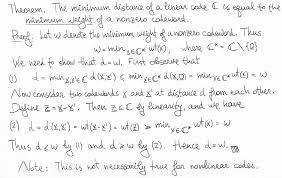 Theorem. The minimum distance of a linear code C is equal to the
minimum weight of a nonzero codeword.
Proof. Let w denote the minimum weight of a nonzero codeword. Thus
w = min_{x∈C*} wt(x), where C* = C \ {0}
We need to show that d = w. First observe that
(1) d = min_{x,x'∈C} d(x,x') ≤ min_{x∈C*} d(x,0) = min_{x∈C*} wt(x) = w
Now consider two codewords x and x' at distance d from each other.
Define z = x - x'. Then z ∈ C by linearity, and we have
(2) d = d(x,x') = wt(x-x') = wt(z) ≥ min_{x∈C*} wt(x) = w
Thus d ≤ w by (1) and d ≥ w by (2). Hence d = w.
Note: This is not necessarily true for nonlinear codes.